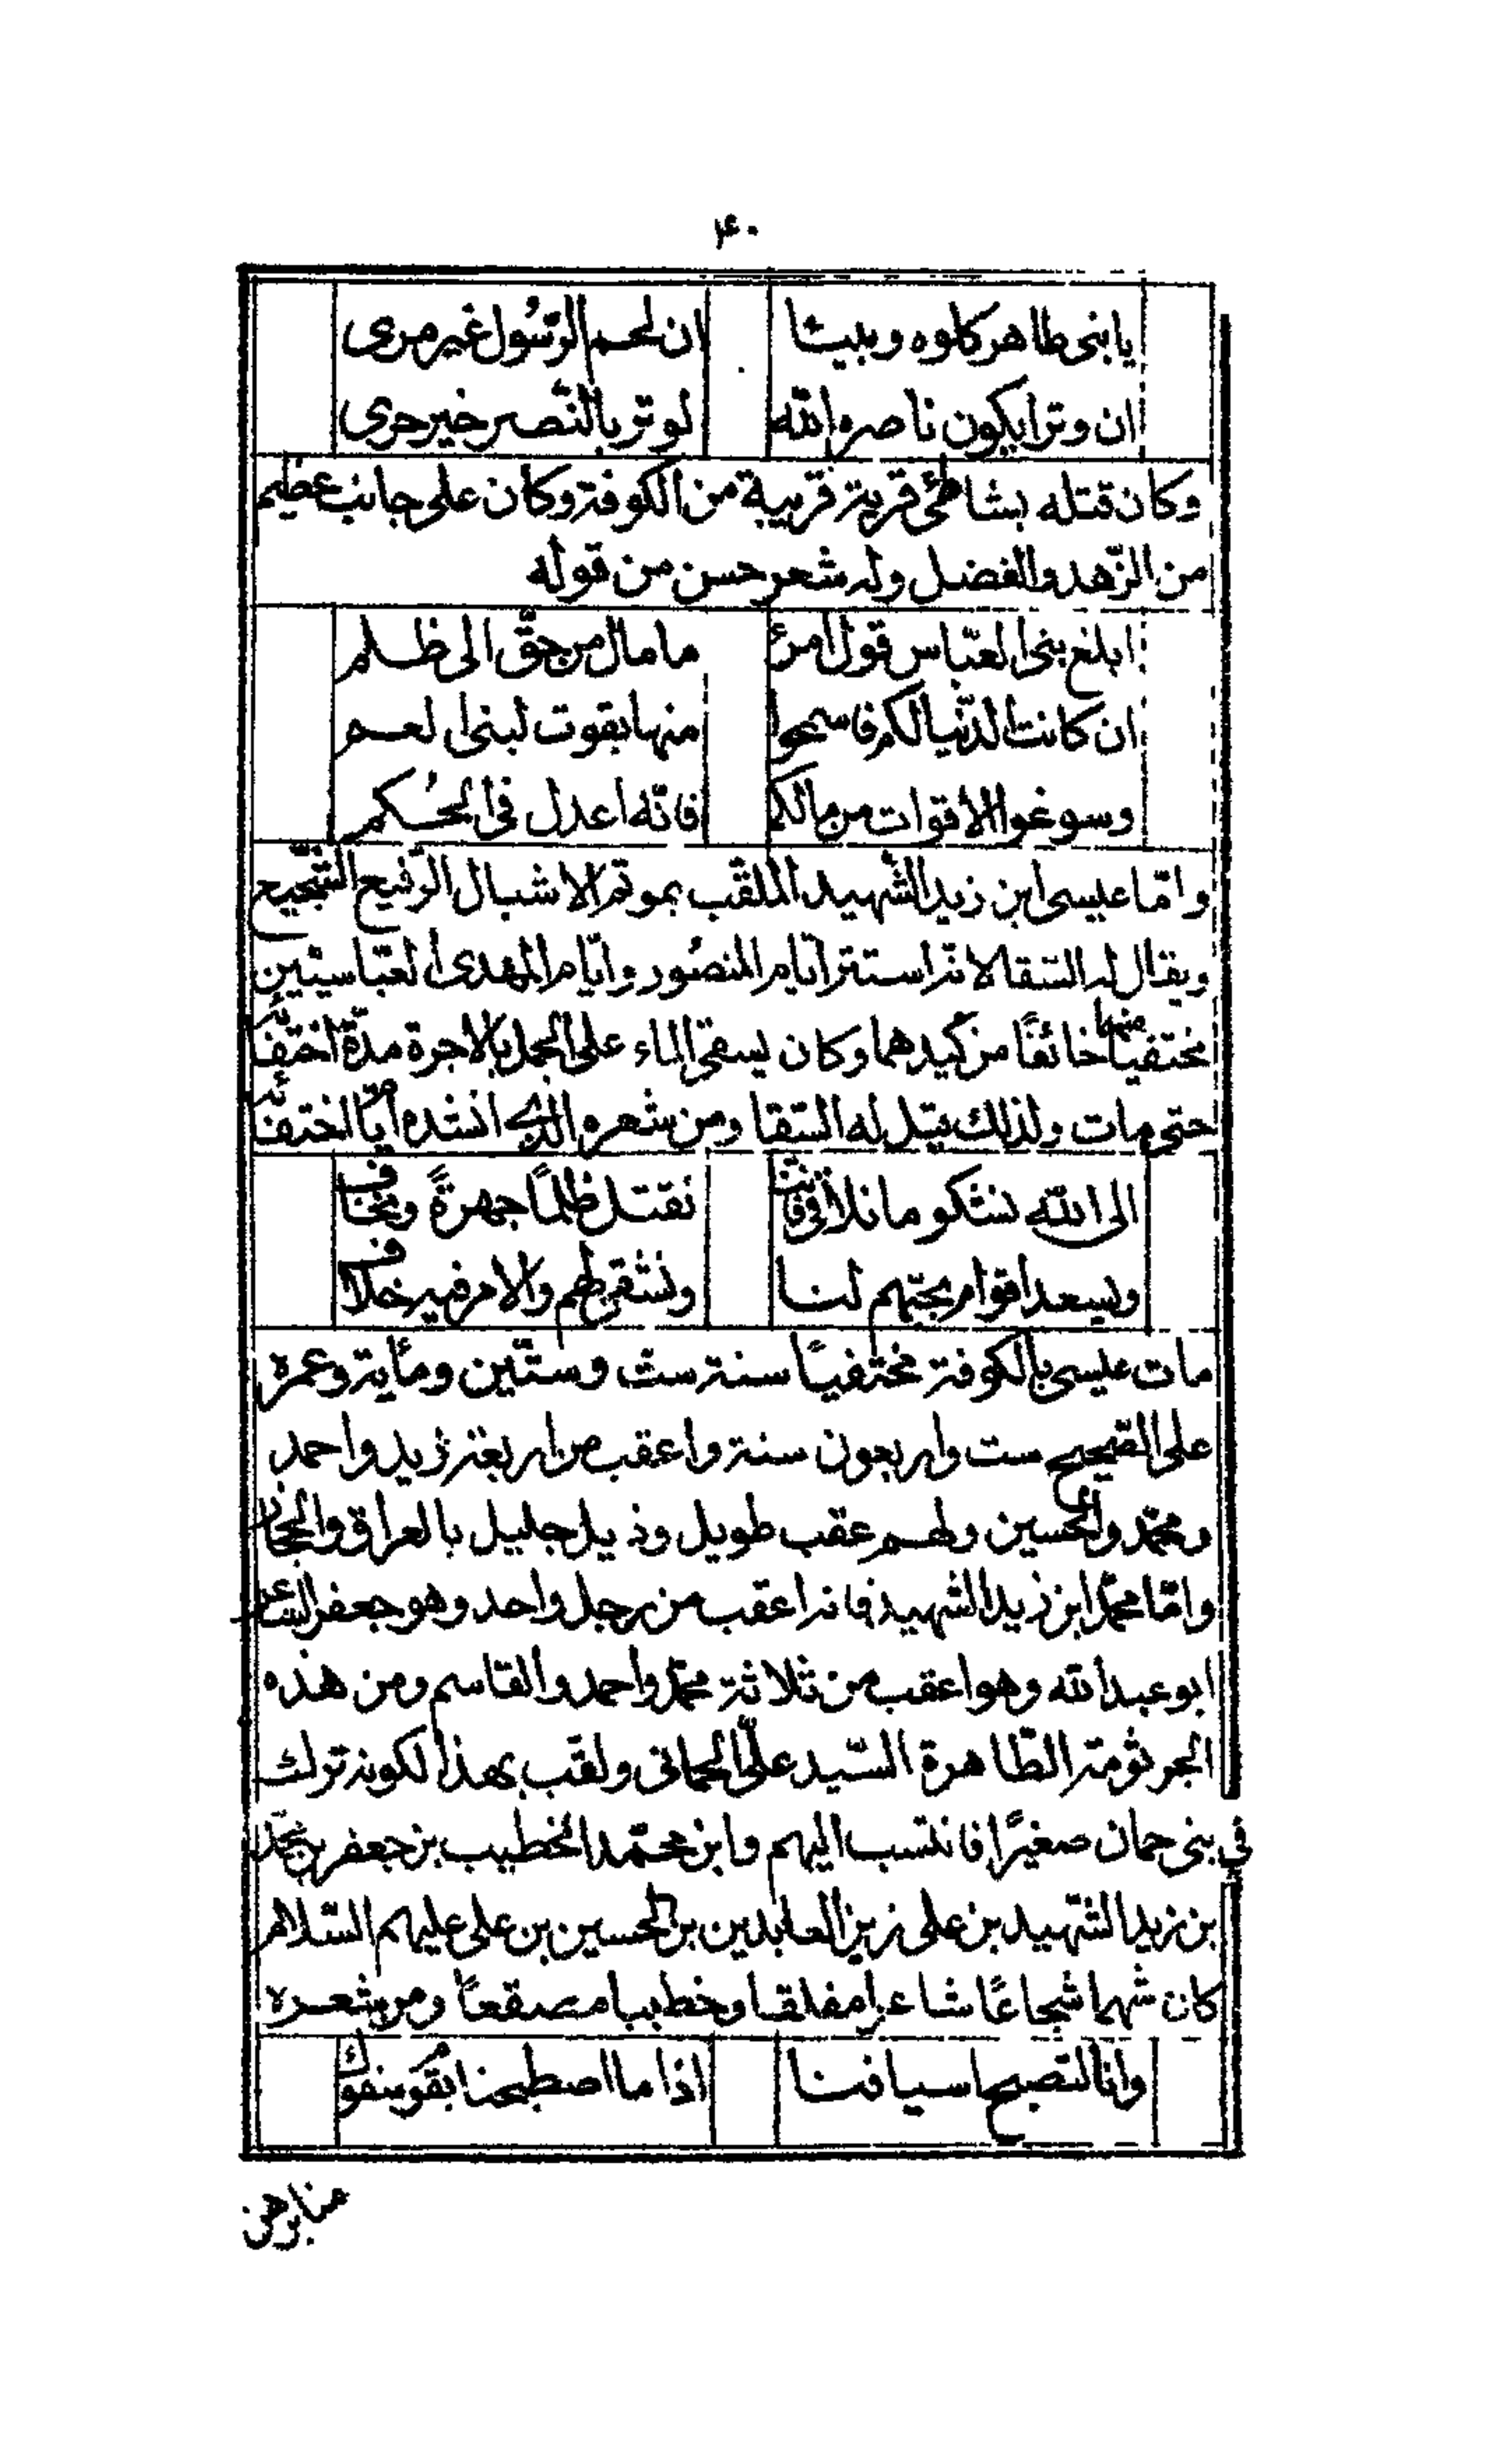 ۴۰
يا بنى طاهر كلوه وبيئا ان لحم الرّسُول غير مرى
ان وترا يكون ناصره اللّه لوتر بالنّصر خير حرى
وكان قتله بشاطئ قرية قريبة من الكوفة وكان على جانب عظيم
من الزّهد والفضل وله شعر حسن من قوله
ابلغ بنى العبّاس قول امرئ ما مال من حقّ الى ظلم
ان كانت الدّنيا لكم فاسمحوا منها بقوت لبنى العم
وسوغوا الأقوات من مالكم فانّه اعدل فى الحُكم
وامّا عيسى ابن زيد الشّهيد الملقّب بموتم الاشبال الرّفيع الشّجيع
ويقال له السّقا لانّه استتر ايّام المنصُور وايّام المهدى العبّاسيين
مختفيًا منهما خائفًا من كيدهما وكان يسقى الماء على الجمل بالاجرة مدّة اختفائه
حتى مات ولذلك قيل له السّقا ومن شعره الذى انشده ايّام اختفائه
الى اللّه نشكو ما نلاقى فاننا نقتل ظلمًا جهرةً ونخاف
ويسعد اقوام بحبّهم لنا ونشقى بهم والامر فيه خلاف
مات عيسى بالكوفة مختفيًا سنة ست وستّين ومأية وعمره
على الصّحيح ست واربعون سنة واعقب من اربعة زيد واحمد
ومحمّد والحسين ولهم عقب طويل وذيل جليل بالعراق والحجاز
وامّا محمّد ابن زيد الشهيد فانه اعقب من رجل واحد وهو جعفر الشاعر
ابو عبد اللّه وهو اعقب من ثلاثة محمّد واحمد والقاسم ومن هذه
الجرثومة الطّاهرة السّيد علىّ الحمانى ولقّب بهذا لكونه ترك
فى بنى حمان صغيرًا فانتسب اليهم وابن محمّد الخطيب بن جعفر بن محمّد
بن زيد الشّهيد بن على زين العابدين بن الحسين بن على عليهم السّلام
كان شهما شجاعًا شاعرا مفلقا وخطيبا مصقعًا ومن شعره
وانا لتصبح اسيافنا اذا ما اصطبحنا بقوم سفوك
منابرهن